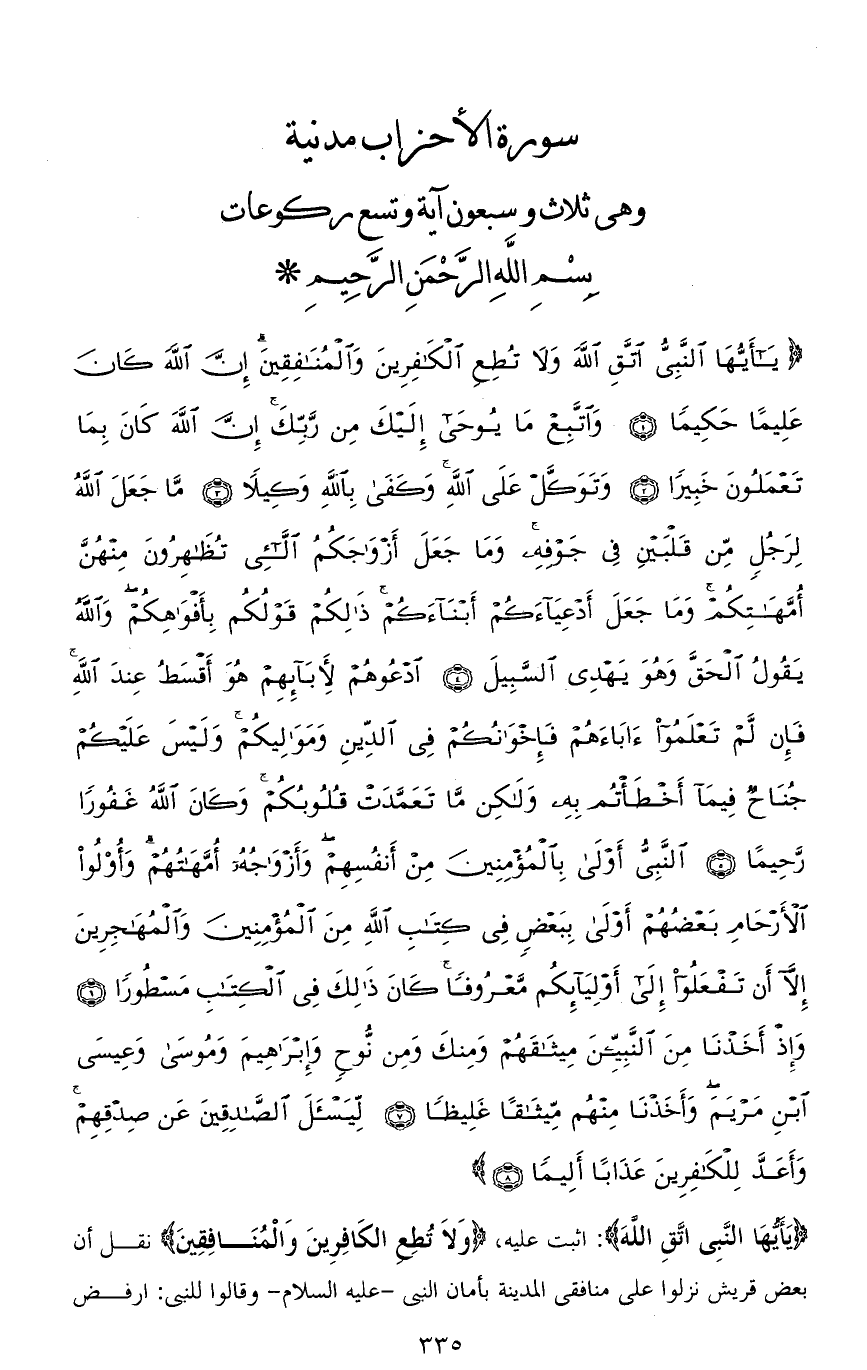 سورة الأحزاب مدنية
وهى ثلاث و سبعون آية و تسع ركوعات
بِسْمِ اللَّهِ الرَّحْمَنِ الرَّحِيمِ *
﴿ يَـٰٓأَيُّهَا ٱلنَّبِىُّ ٱتَّقِ ٱللَّهَ وَلَا تُطِعِ ٱلْكَـٰفِرِينَ وَٱلْمُنَـٰفِقِينَ ۗ إِنَّ ٱللَّهَ كَانَ
عَلِيمًا حَكِيمًا ۝١ وَٱتَّبِعْ مَا يُوحَىٰٓ إِلَيْكَ مِن رَّبِّكَ ۚ إِنَّ ٱللَّهَ كَانَ بِمَا
تَعْمَلُونَ خَبِيرًا ۝٢ وَتَوَكَّلْ عَلَى ٱللَّهِ ۚ وَكَفَىٰ بِٱللَّهِ وَكِيلًا ۝٣ مَّا جَعَلَ ٱللَّهُ
لِرَجُلٍ مِّن قَلْبَيْنِ فِى جَوْفِهِۦ ۚ وَمَا جَعَلَ أَزْوَٰجَكُمُ ٱلَّـٰٓـِٔى تُظَـٰهِرُونَ مِنْهُنَّ
أُمَّهَـٰتِكُمْ ۚ وَمَا جَعَلَ أَدْعِيَآءَكُمْ أَبْنَآءَكُمْ ۚ ذَٰلِكُمْ قَوْلُكُم بِأَفْوَٰهِكُمْ ۖ وَٱللَّهُ
يَقُولُ ٱلْحَقَّ وَهُوَ يَهْدِى ٱلسَّبِيلَ ۝٤ ٱدْعُوهُمْ لِأَبَآئِهِمْ هُوَ أَقْسَطُ عِندَ ٱللَّهِ ۚ
فَإِن لَّمْ تَعْلَمُوٓا۟ ءَابَآءَهُمْ فَإِخْوَٰنُكُمْ فِى ٱلدِّينِ وَمَوَٰلِيكُمْ ۚ وَلَيْسَ عَلَيْكُمْ
جُنَاحٌ فِيمَآ أَخْطَأْتُم بِهِۦ وَلَـٰكِن مَّا تَعَمَّدَتْ قُلُوبُكُمْ ۚ وَكَانَ ٱللَّهُ غَفُورًا
رَّحِيمًا ۝٥ ٱلنَّبِىُّ أَوْلَىٰ بِٱلْمُؤْمِنِينَ مِنْ أَنفُسِهِمْ ۖ وَأَزْوَٰجُهُۥٓ أُمَّهَـٰتُهُمْ ۗ وَأُو۟لُوا۟
ٱلْأَرْحَامِ بَعْضُهُمْ أَوْلَىٰ بِبَعْضٍ فِى كِتَـٰبِ ٱللَّهِ مِنَ ٱلْمُؤْمِنِينَ وَٱلْمُهَـٰجِرِينَ
إِلَّآ أَن تَفْعَلُوٓا۟ إِلَىٰٓ أَوْلِيَآئِكُم مَّعْرُوفًا ۚ كَانَ ذَٰلِكَ فِى ٱلْكِتَـٰبِ مَسْطُورًا ۝٦
وَإِذْ أَخَذْنَا مِنَ ٱلنَّبِيِّـۧنَ مِيثَـٰقَهُمْ وَمِنكَ وَمِن نُّوحٍ وَإِبْرَٰهِيمَ وَمُوسَىٰ وَعِيسَى
ٱبْنِ مَرْيَمَ ۖ وَأَخَذْنَا مِنْهُم مِّيثَـٰقًا غَلِيظًا ۝٧ لِّيَسْـَٔلَ ٱلصَّـٰدِقِينَ عَن صِدْقِهِمْ ۚ
وَأَعَدَّ لِلْكَـٰفِرِينَ عَذَابًا أَلِيمًا ۝٨ ﴾
﴿يَأَيُّهَا النَّبِى اتَّقِ اللَّهَ﴾: اثبت عليه، ﴿وَلاَ تُطِعِ الكَافِرِينَ وَالْمُنَـافِقِينَ﴾ نقل أن
بعض قريش نزلوا على منافقى المدينة بأمان النبى -عليه السلام- وقالوا للنبى: ارفض
٣٣٥